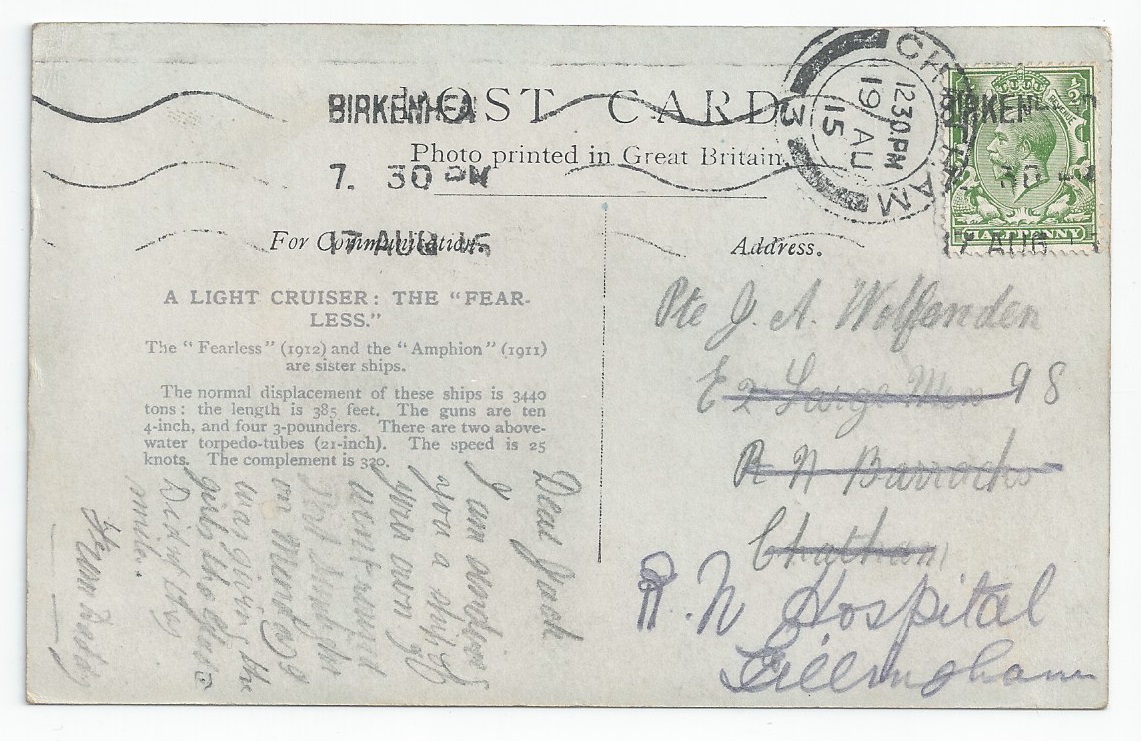 POST CARD
Photo printed in Great Britain.
BIRKENHEA
7. 30 PM
17 AUG 15
CHATHAM
12 30 PM
19 AU
15
3
BIRKEN
30
17 AUG
HALFPENNY
For Communication.
Address.
A LIGHT CRUISER: THE "FEAR-
LESS."
The "Fearless" (1912) and the "Amphion" (1911)
are sister ships.
The normal displacement of these ships is 3440
tons: the length is 385 feet. The guns are ten
4-inch, and four 3-pounders. There are two above-
water torpedo-tubes (21-inch). The speed is 25
knots. The complement is 320.
Dear Jack
I am sending
you a ship of
your own
went round
on Monday &
was giving the
girls the glass
Didn't they
smile.
From Daddy
Pte J. A. Wolfenden
E 2 Large Mess 98
R N Barracks
Chatham
R. N Hospital
Gillingham